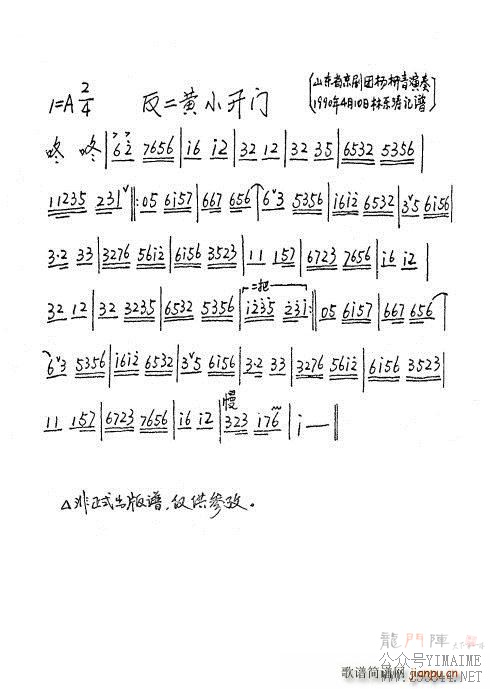 1=A 2/4 反二黄小开门 (山东省京剧团杨柳青演奏
1990年4月10日林东塔记谱)
咚 咚 | 6 2 7656 | i6 i2 | 32 12 | 32 35 | 6532 5356 |
11235 231 ‖: 05 6i57 | 667 656 | 6ˇ3 5356 | i6i2 6532 | 3ˇ5 6i56 |
3·2 33 | 3276 56i2 | 6i56 3523 | 11 157 | 6723 7656 | i6 i2 |
32 12 | 32 3235 | 6532 5356 | 二把 i235 23i :‖ 05 6i57 | 667 656 |
6ˇ3 5356 | i6i2 6532 | 3ˇ5 6i56 | 3·2 33 | 3276 56i2 | 6i56 3523 |
11 157 | 6723 7656 | i6 i2 | 慢 323 i76 | i — ‖
△非正式出版谱,仅供参改。
龍門陣
公众号YIMAIME
歌谱简谱网 jianpu.cn